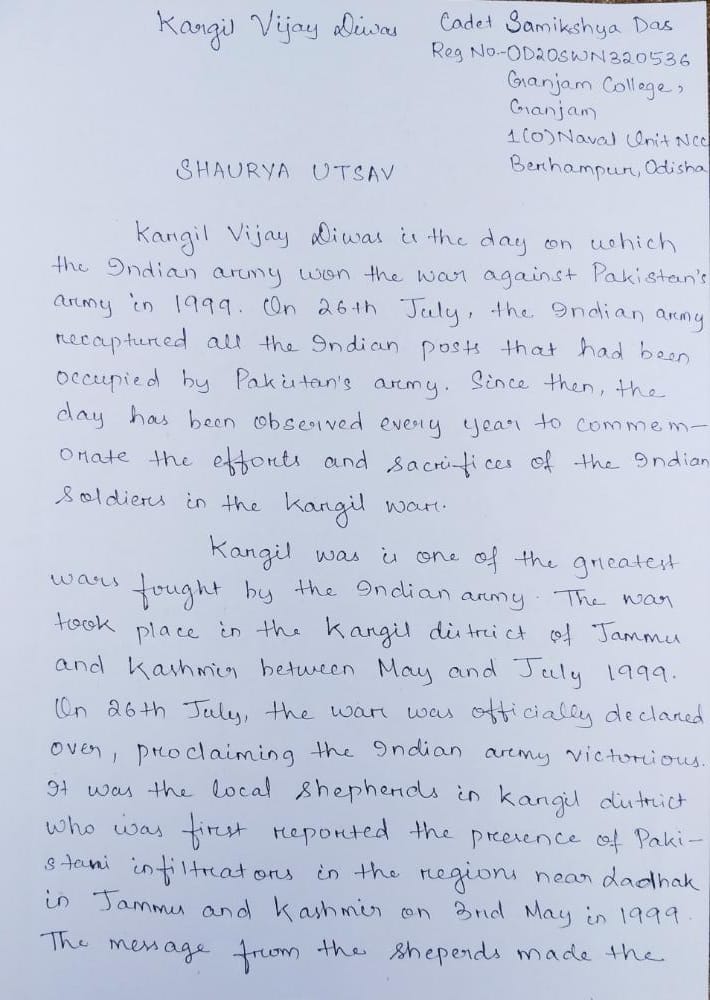 Kargil Vijay Diwas
Cadet Samikshya Das
Reg No.-OD20SWN320536
Ganjam College,
Ganjam
1(O) Naval Unit NCC
Berhampur, Odisha
SHAURYA UTSAV
Kargil Vijay Diwas is the day on which
the Indian army won the war against Pakistan's
army in 1999. On 26th July, the Indian army
recaptured all the Indian posts that had been
occupied by Pakistan's army. Since then, the
day has been observed every year to commem-
orate the efforts and sacrifices of the Indian
Soldiers in the Kargil war.
Kargil was is one of the greatest
wars fought by the Indian army. The war
took place in the Kargil district of Jammu
and Kashmir between May and July 1999.
On 26th July, the war was officially declared
over, proclaiming the Indian army victorious.
It was the local shepherds in Kargil district
who was first reported the presence of Paki-
stani infiltrators in the regions near Ladhak
in Jammu and Kashmir on 3rd May in 1999.
The message from the sheperds made the